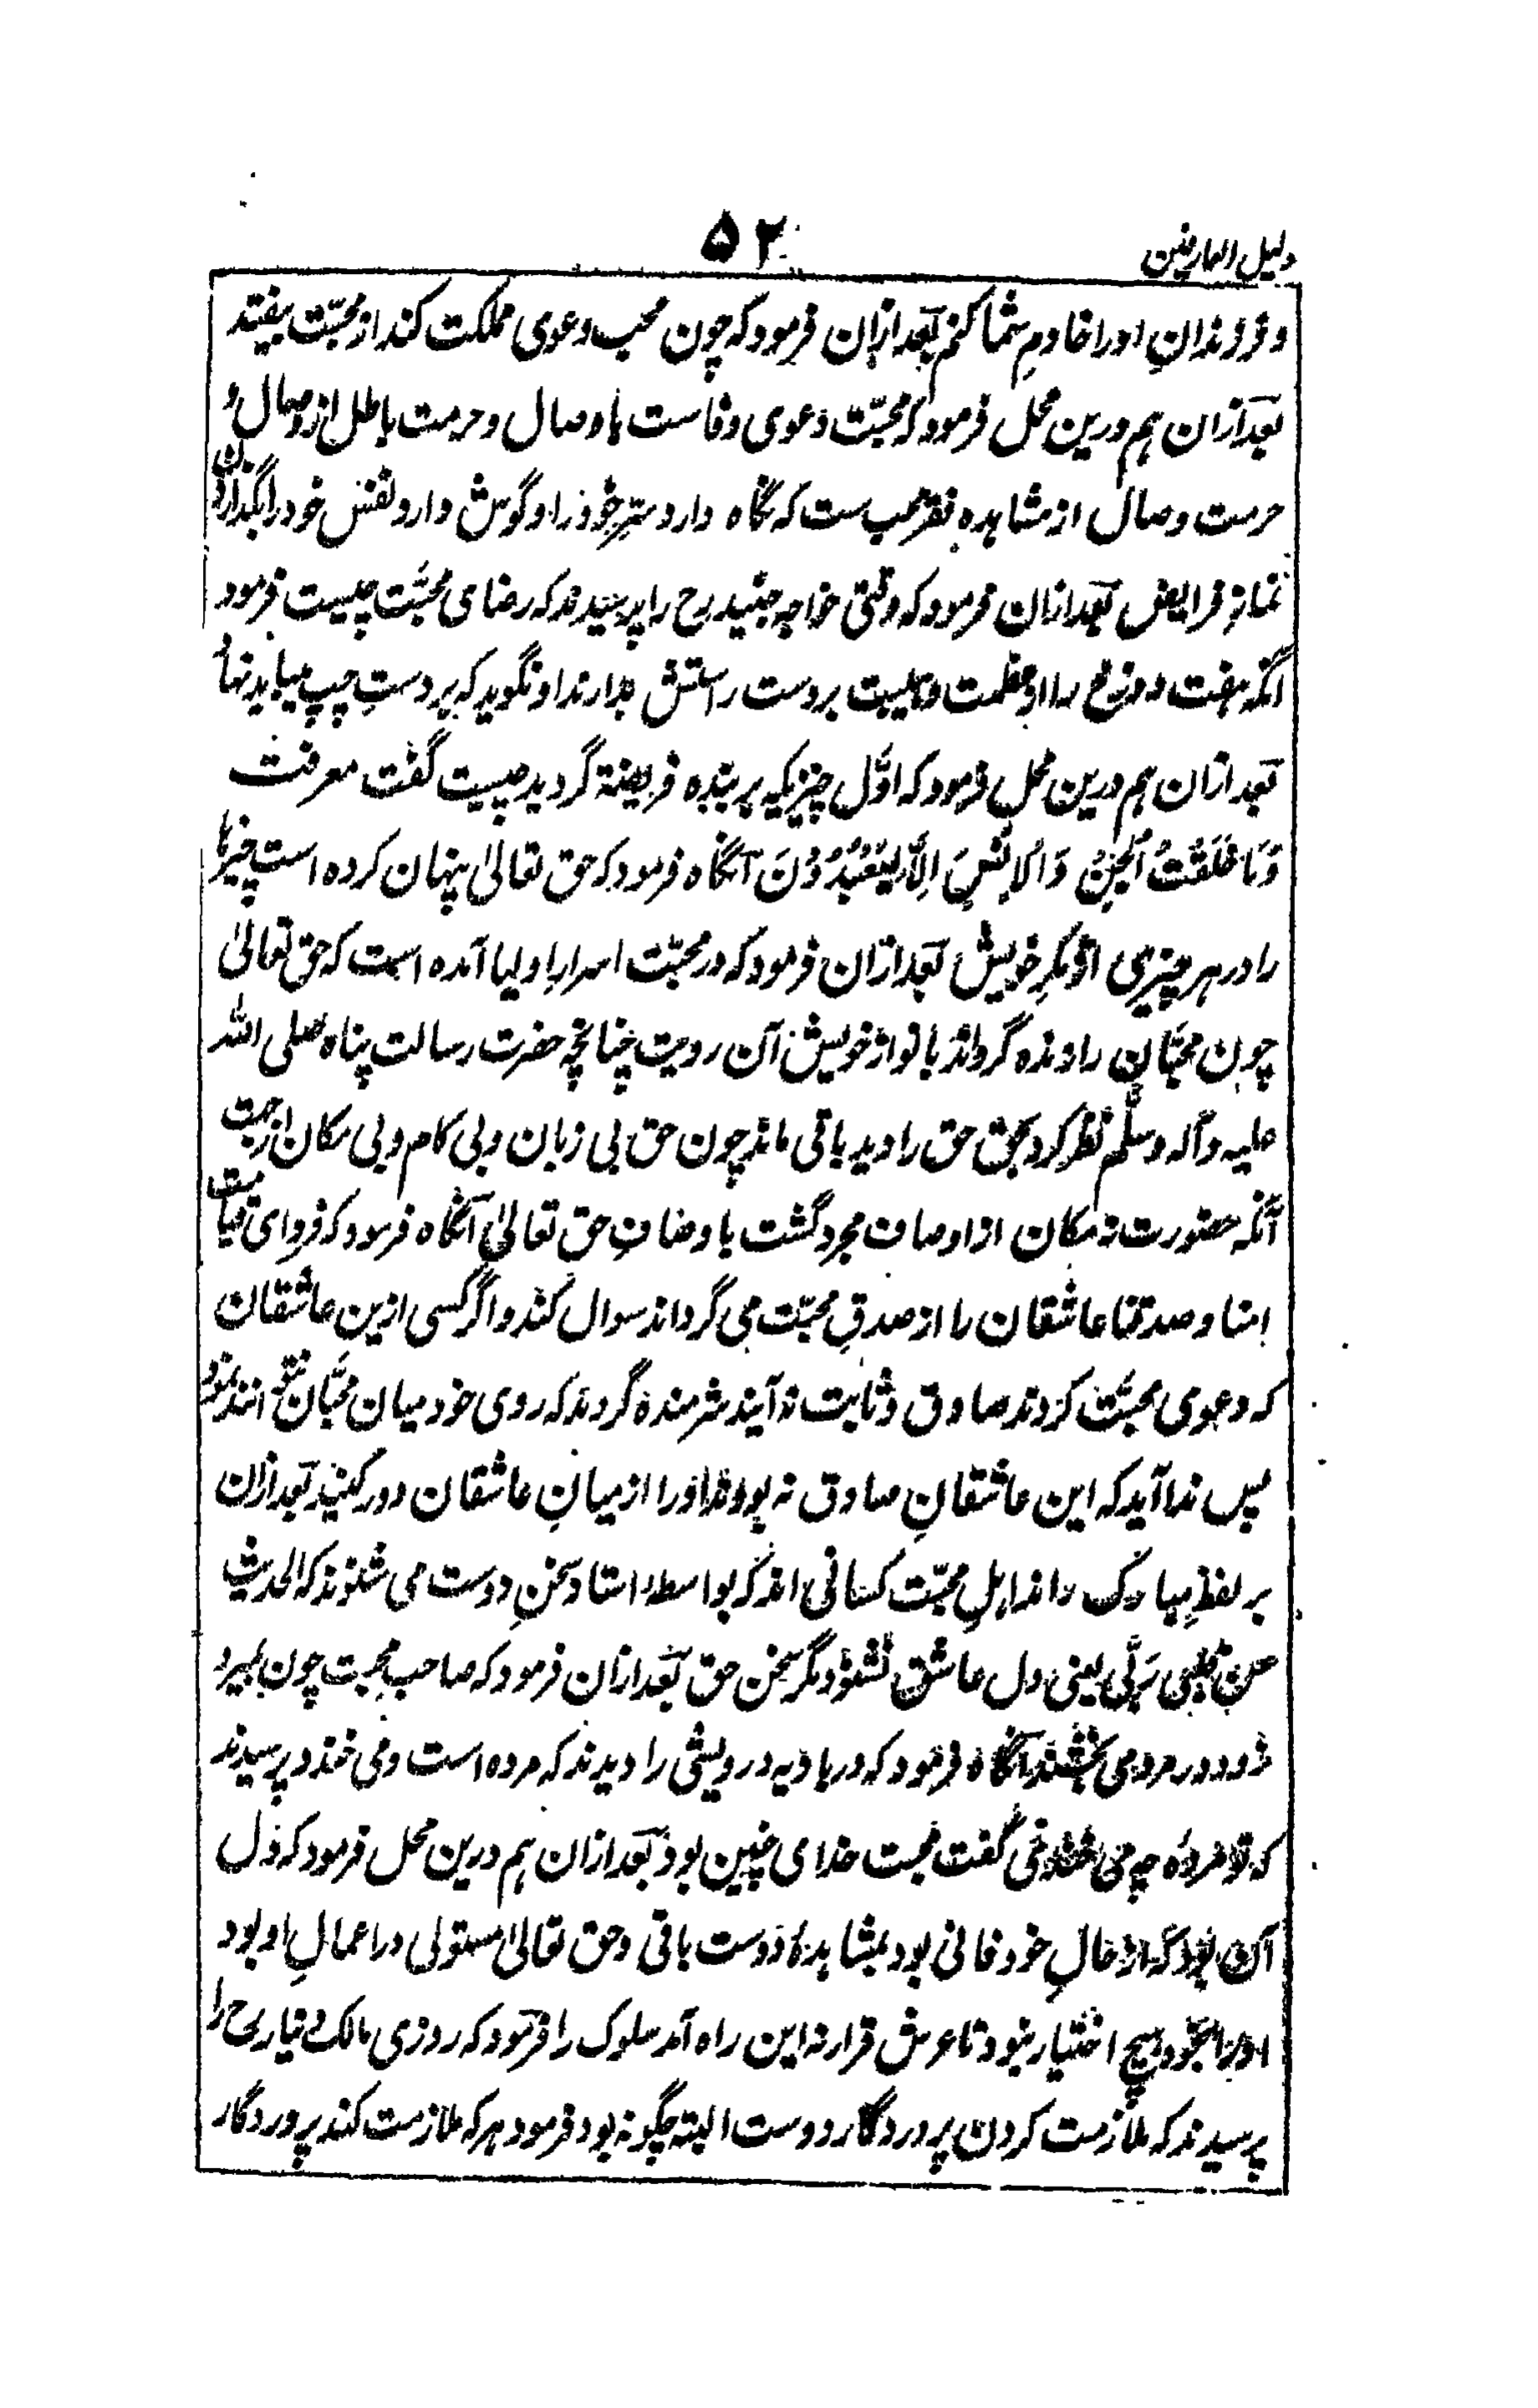 دلیل العارفین
۵۲
و فرزندانِ او را خادمِ شما کنم بعد ازان فرمود که چون محب دعوی مملکت کند از محبّت بیفتد
بعد ازان هم درین محل فرمود که محبّت دعوی وفاست با وصال و حرمت باطل از وصال و
حرمت وصال از مشاهده فقر محب ست که نگاه دارد سّرِ خود را و گوش دارد نفس خود را بگذاردن
نمازِ فرایض بعد ازان فرمود که وقتی خواجه جنید رح را پرسیدند که رضای محبّت چیست فرمود
آنکه هفت دوزخ را از عظمت و هیبت بر دست راستش بدارند او نگوید که بر دستِ چپ میباید نهاد
بعد ازان هم درین محل فرمود که اوّل چیزیکه بر بنده فریضة گردید چیست گفت معرفت
وَمَا خَلَقْتُ الْجِنَّ وَالْاِنْسَ اِلَّا لِیَعْبُدُوْنَ آنگاه فرمود که حق تعالیٰ پنهان کرده است چیزها
را در هر چیزی از مکرِ خویش بعد ازان فرمود که در محبّت اسرارِ اولیا آمده است که حق تعالیٰ
چون محبّان را زنده گرداند با نوارِ خویش آن رویت چنانچه حضرت رسالت پناه صلی الله
علیه و آله و سلّم نظر کرد بحق حق را دید باقی ماند چون حق بی زبان و بی کام و بی مکان از جهت
آنکه حضورت نه مکان از اوصاف مجرد گشت با وصافِ حق تعالیٰ آنگاه فرمود که فردای قیامت
امنا و صدقنا عاشقان را از صدقِ محبّت می گرداند سوال کند و اگر کسی ازین عاشقان
که دعوی محبّت کردند صادق و ثابت نه آیند شرمنده گردند که روی خود میان محبّان نتوانند نمود
پس ندا آید که این عاشقانِ صادق نه بودند او را از میانِ عاشقان دور کنید بعد ازان
بر لفظِ مبارک راند اهلِ محبّت کسانی اند که بواسطه استاد سخنِ دوست می شنوند که الحدیث
عن قلبی ربّی یعنی دل عاشق نشنود مگر سخن حق بعد ازان فرمود که صاحبِ محبت چون بمیرد
زود در مردمی بخشند آنگاه فرمود که در بادیه درویشی را دیدند که مرده است و می خندد پرسیدند
که تو مردهٔ چه می خندی گفت محبت خدای چنین بود بعد ازان هم درین محل فرمود که دل
آن بود که از حالِ خود فانی بود بمشاهدهٔ دوست باقی و حق تعالیٰ مستولی در اعمالِ او بود
او را بخود هیچ اختیار نبود تا عرش قرار نه این راه آمد سلوک را فرمود که روزی مالک دینار رح را
پرسیدند که ملازمت کردن پروردگار دوست البته چگونه بود فرمود هر که ملازمت کند پروردگار